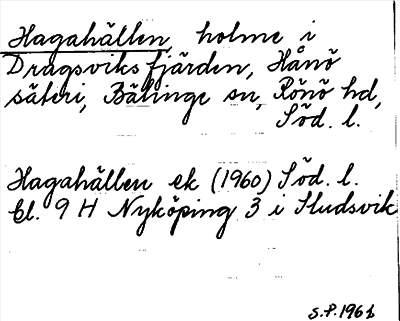 Hagahällen, holme i
Dragsviksfjärden, Hånö
säteri, Bälinge sn, Rönö hd,
Söd. l.
Hagahällen ek (1960) Söd. l.
bl. 9 H Nyköping 3 i Studsvik
S.P. 1961